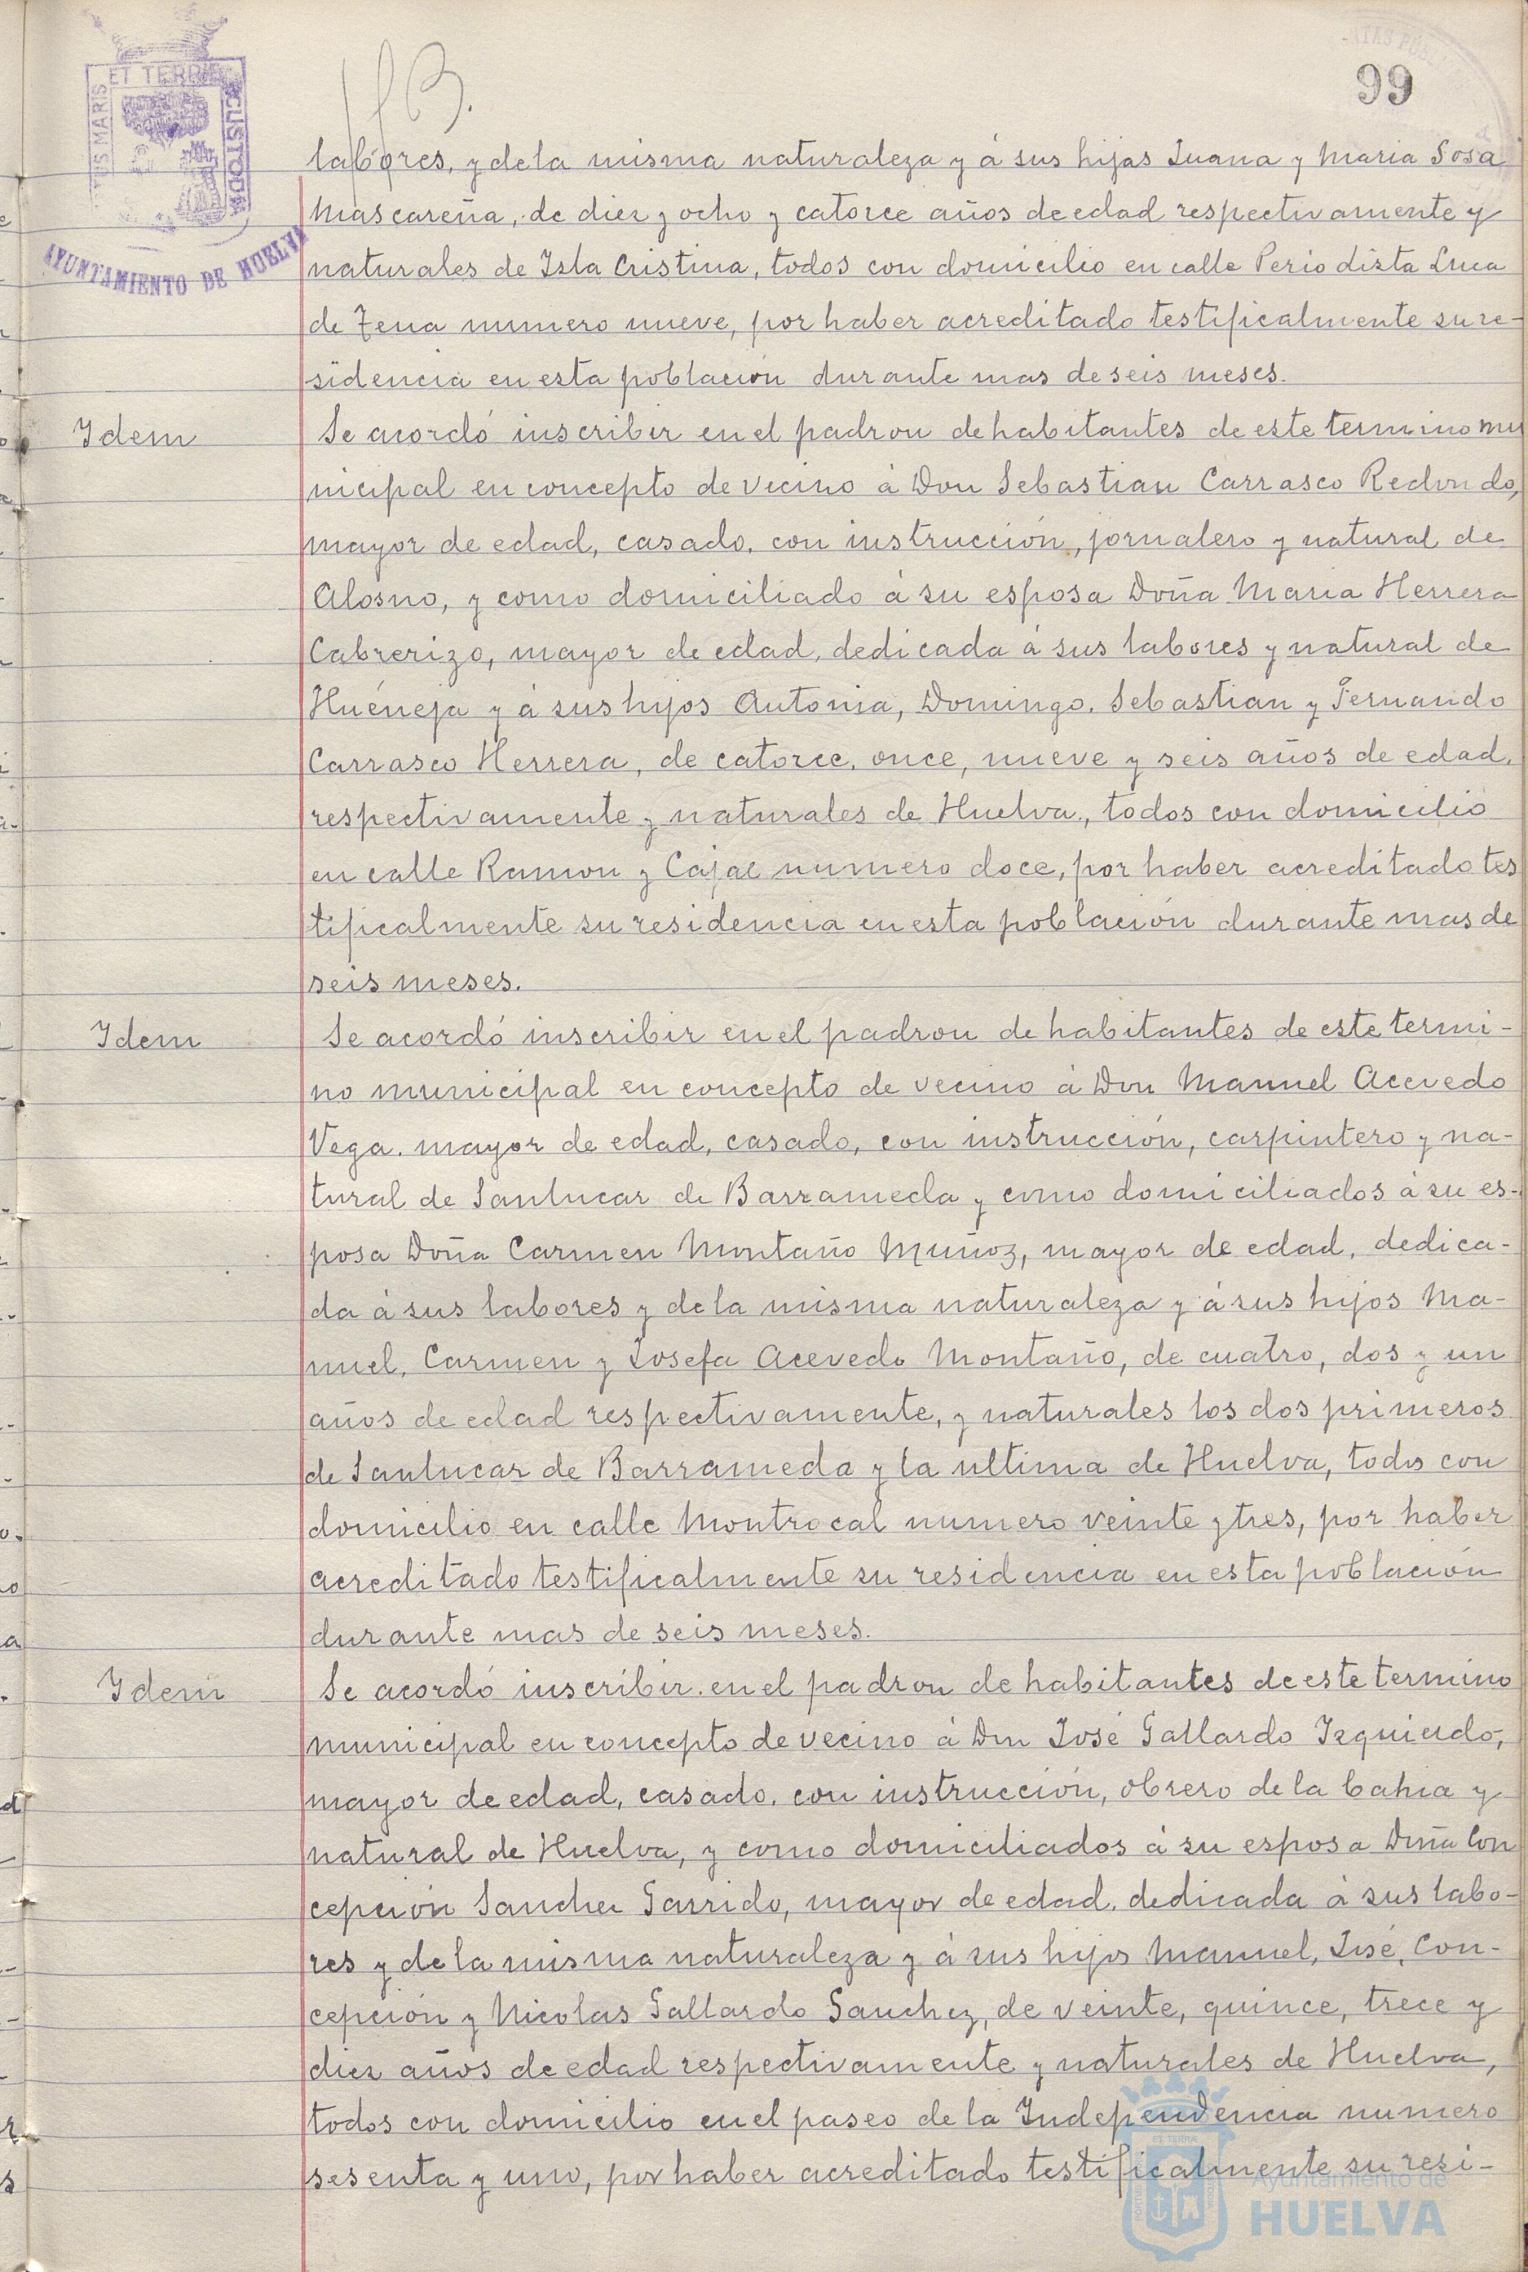 99
ET TERRE
CUSTODIA
TUS MARIS
AYUNTAMIENTO DE HUELVA
labores, y de la misma naturaleza y á sus hijas Juana y Maria Sosa
Mascareña, de diez y ocho y catorce años de edad respectivamente y
naturales de Isla Cristina, todos con domicilio en calle Periodista Luca
de Tena numero nueve, por haber acreditado testificalmente su re-
sidencia en esta población durante mas de seis meses.
Idem
Se acordó inscribir en el padron de habitantes de este termino mu
nicipal en concepto de vecino á Don Sebastian Carrasco Redondo,
mayor de edad, casado, con instrucción, jornalero y natural de
Alosno, y como domiciliado á su esposa Doña Maria Herrera
Cabrerizo, mayor de edad, dedicada á sus labores y natural de
Huéneja y á sus hijos Antonia, Domingo, Sebastian y Fernando
Carrasco Herrera, de catorce, once, nueve y seis años de edad,
respectivamente y naturales de Huelva, todos con domicilio
en calle Ramon y Cajal numero doce, por haber acreditado tes
tificalmente su residencia en esta población durante mas de
seis meses.
Idem
Se acordó inscribir en el padron de habitantes de este termi-
no municipal en concepto de vecino á Don Manuel Acevedo
Vega, mayor de edad, casado, con instrucción, carpintero y na-
tural de Sanlucar de Barrameda y como domiciliados á su es-
posa Doña Carmen Montaño Muñoz, mayor de edad, dedica-
da á sus labores y de la misma naturaleza y á sus hijos Ma-
nuel, Carmen y Josefa Acevedo Montaño, de cuatro, dos y un
años de edad respectivamente, y naturales los dos primeros
de Sanlucar de Barrameda y la ultima de Huelva, todos con
domicilio en calle Montrocal numero veinte y tres, por haber
acreditado testificalmente su residencia en esta población
durante mas de seis meses.
Idem
Se acordó inscribir en el padron de habitantes de este termino
municipal en concepto de vecino á Don José Gallardo Izquierdo,
mayor de edad, casado, con instrucción, obrero de la bahia y
natural de Huelva, y como domiciliados á su esposa Doña Con
cepción Sanchez Garrido, mayor de edad, dedicada á sus labo-
res y de la misma naturaleza y á sus hijos Manuel, José, Con-
cepción y Nicolas Gallardo Sanchez, de veinte, quince, trece y
diez años de edad respectivamente y naturales de Huelva,
todos con domicilio en el paseo de la Independencia numero
sesenta y uno, por haber acreditado testificalmente su resi-
Ayuntamiento de
HUELVA